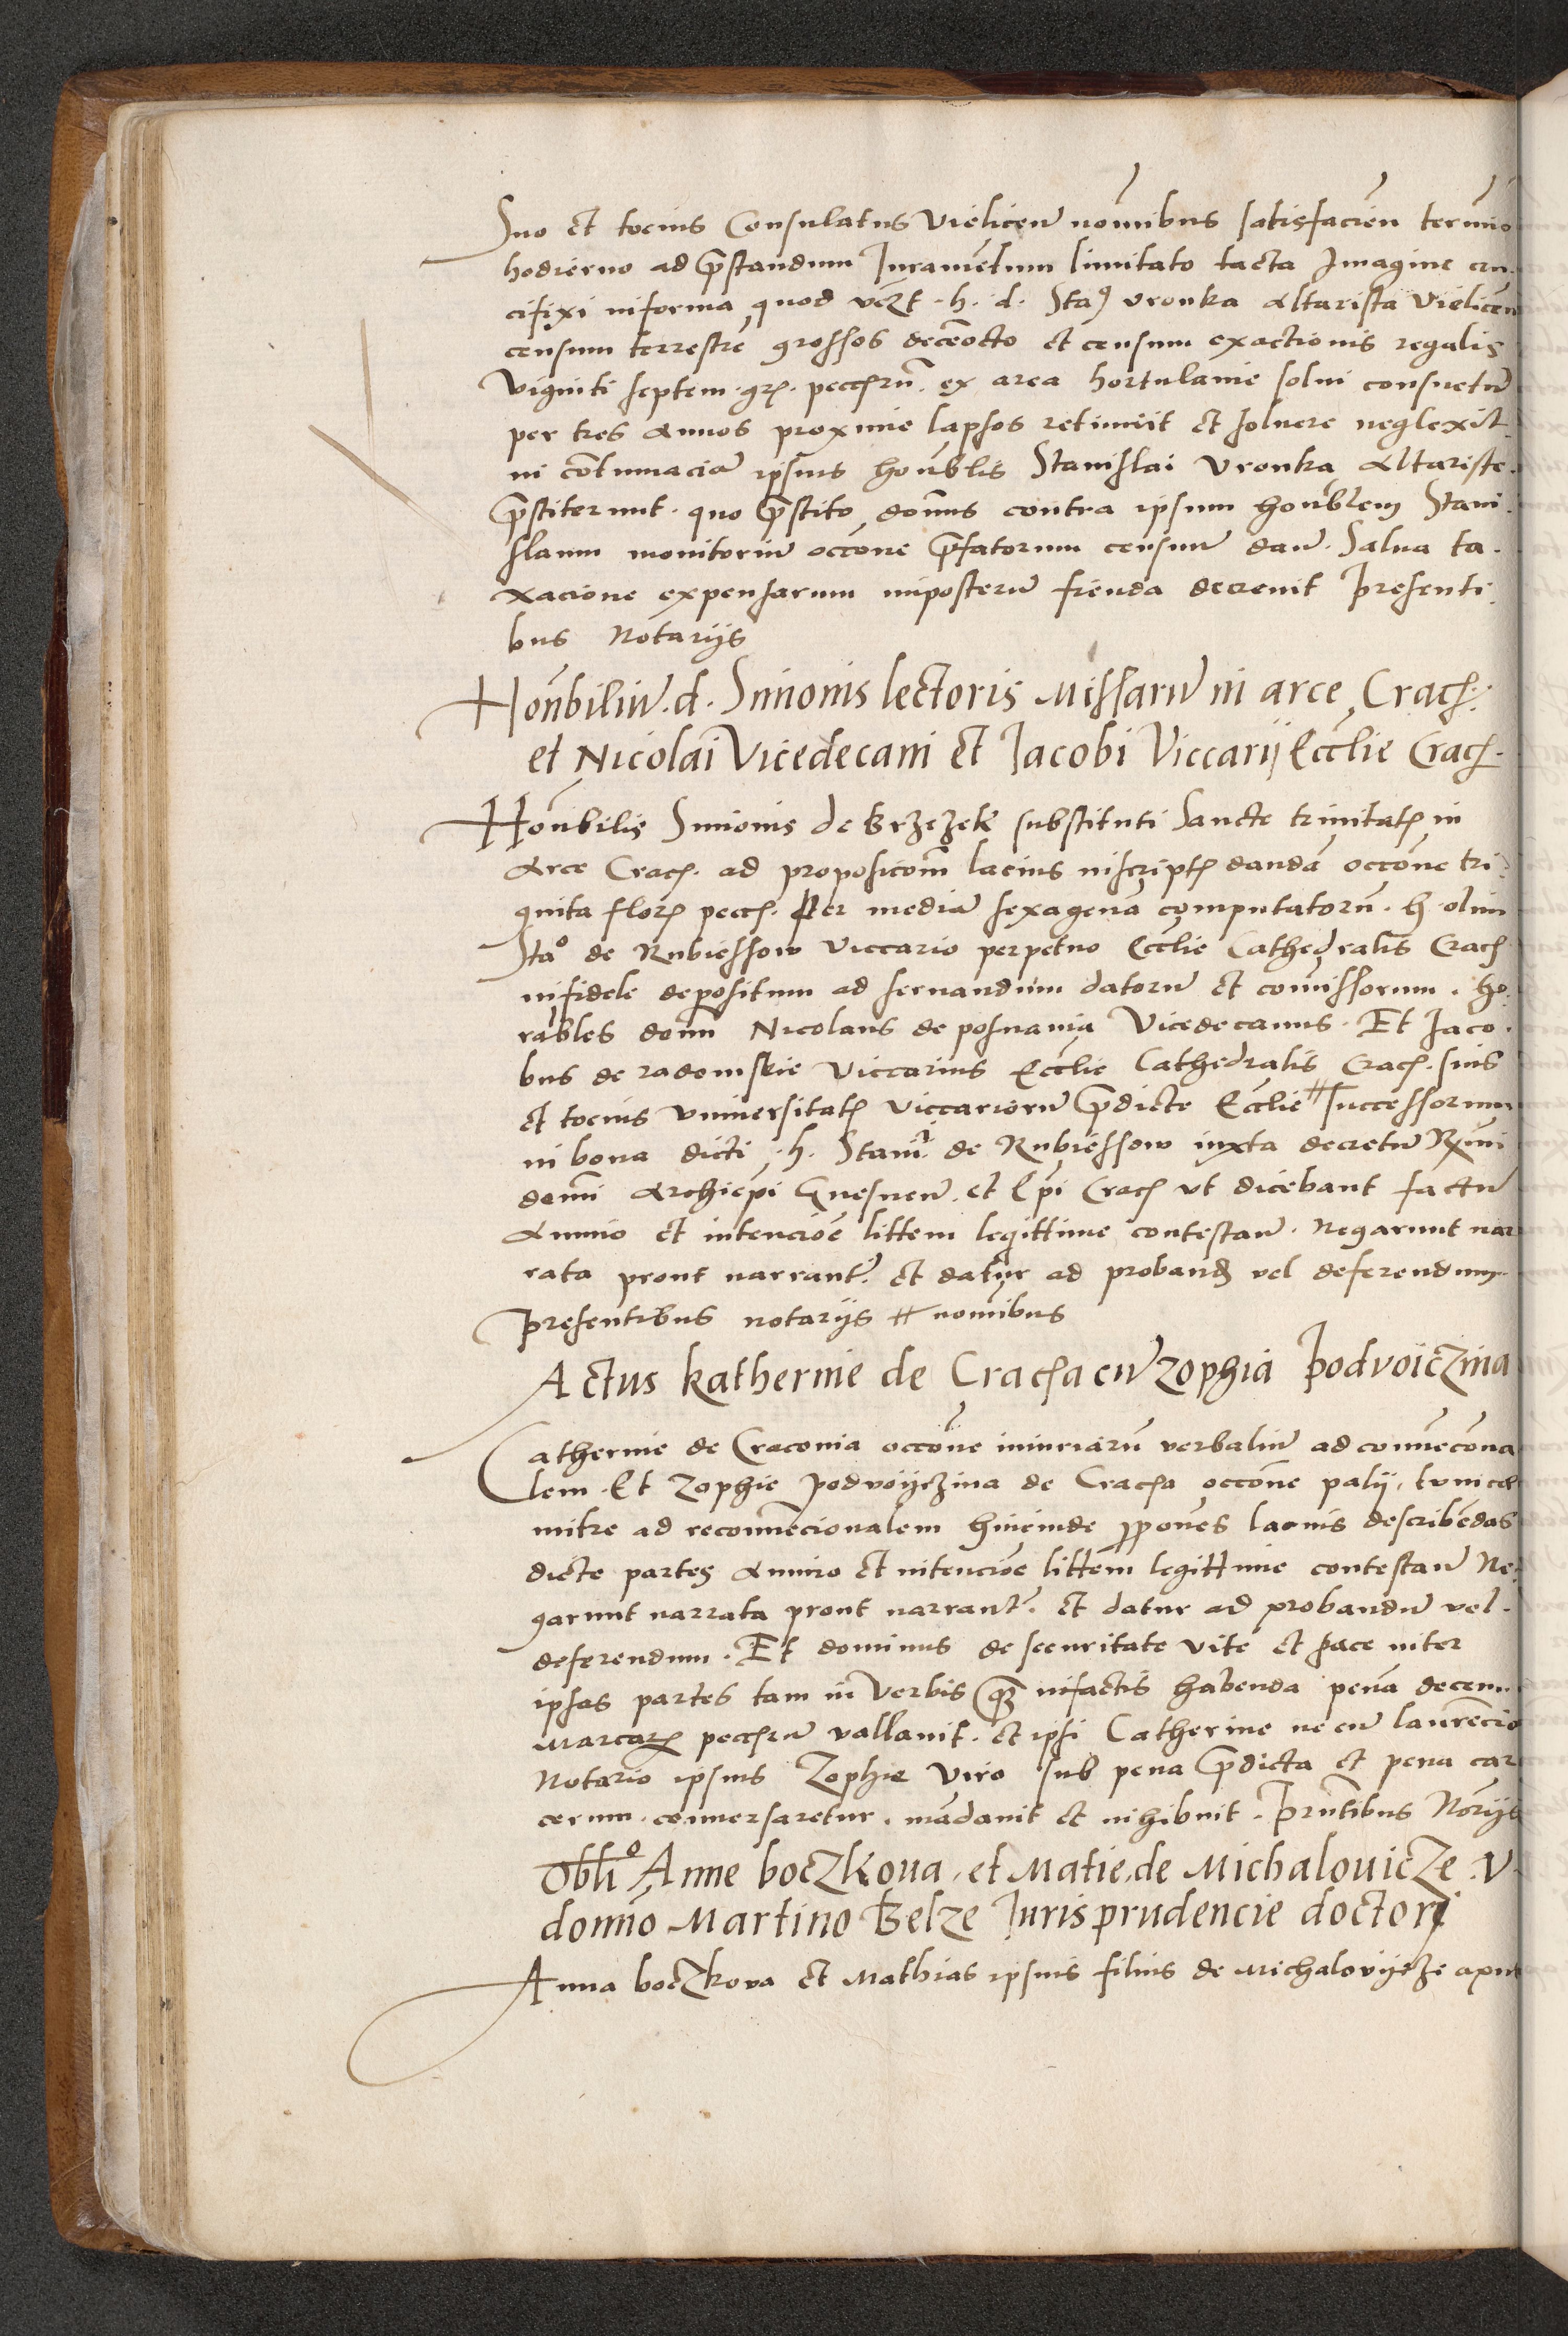 Suo et tocius Consulatus Vielicen̄ noīnibus satisfacien̄ termīo
hodierno ad p̄standum Juramentum limitato tacta Imagine cru-
cifixi informa quod h. d. Sta9 Vronka Altarista Vielicen̄
censum terrestrē grossos decēocto et censum exactionis regalis
Viginti septem gr. pecc̄rū ex area hortulanie solui consuetū
per tres Annos proxime lapsos retinuit et soluere neglexit
in cōtumaciā ipsius honb̄lis Stanislai Vronka Altariste.
p̄stiterunt. quo p̄stito domn̄s contra ipsum honb̄lem Stani-
slaum monitoriū occōne p̄fatorum censuū dan̄. Salua ta-
xacione expensarum imposterū fienda decreuit Presenti-
bus Notarijs
Hon̄biliū d. Simonis lectoris Missarū in arce Crac.
et Nicolai Vicedecani et Jacobi Viccarij Ecc̄lie Crac.
Hon̄bilis Simonis de Brzezek substituti Sancte trinitatis in
Arce Crac. ad proposicōm lacius inscript dandā occōne tri-
ginta flor pecc. Per mediā sexagenā computatorū. h. olim
Stao de Rubiessow Viccario perpetuo Ecc̄lie Cathedralis Crac
infidele depositum ad seruandum datorū et comissorum. Ho-
rables domī Nicolaus de posnania Vicedecanus. Et Jaco-
bus de radomskie Viccarius Ecc̄lie Cathedralis Crac. suis
et tocius vniuersitatis Viccariorū p̄dicte Ecc̄lie # Successorum
in bona dicti h. Stani de Rubiessow iuxta decretū Rmi
domī Archiep̄i Gnesnen̄. et Ep̄i Crac vt dicebant factū
Animo et intenciōe littem legittime contestan̄. Negarunt nar
rata prout narrantr. et datur ad proband vel deferendum
Presentibus notarijs # noīnibus
Actus katherine de Cracha cū zophia Podvoiczina
Catherine de Craconia occōne iniuriarū verbaliū ad conuēcōna
lem. Et Zophie podvoyczina de Craca occōne palij, tunice
mitre ad reconuēcionalem hincinde ppōnes lacius describēdas
dicte partes Animo et intenciōe littem legittime contestan̄ Ne-
garunt narrata prout narrantr. et datur ad probandū vel
deferendum. Et dominus de securitate vite et pace inter
ipsas partes tam in verbis q̄ infactis habenda penā decem
Marcar peccrū vallauit. et ipsi Catherine ne cū laurēcio
Notario ipsius Zophie Viro sub pena p̄dicta et pena car
cerum conuersaretur. mādauit et inhibuit. Prn̄tibus Norijs
Obli° Anne boczkoua, et Matie, de Michalouicze. V.
domīo Martino Belze Jurisprudencie doctori
Anna boczkova et Mathias ipsius filius de Michalovycze